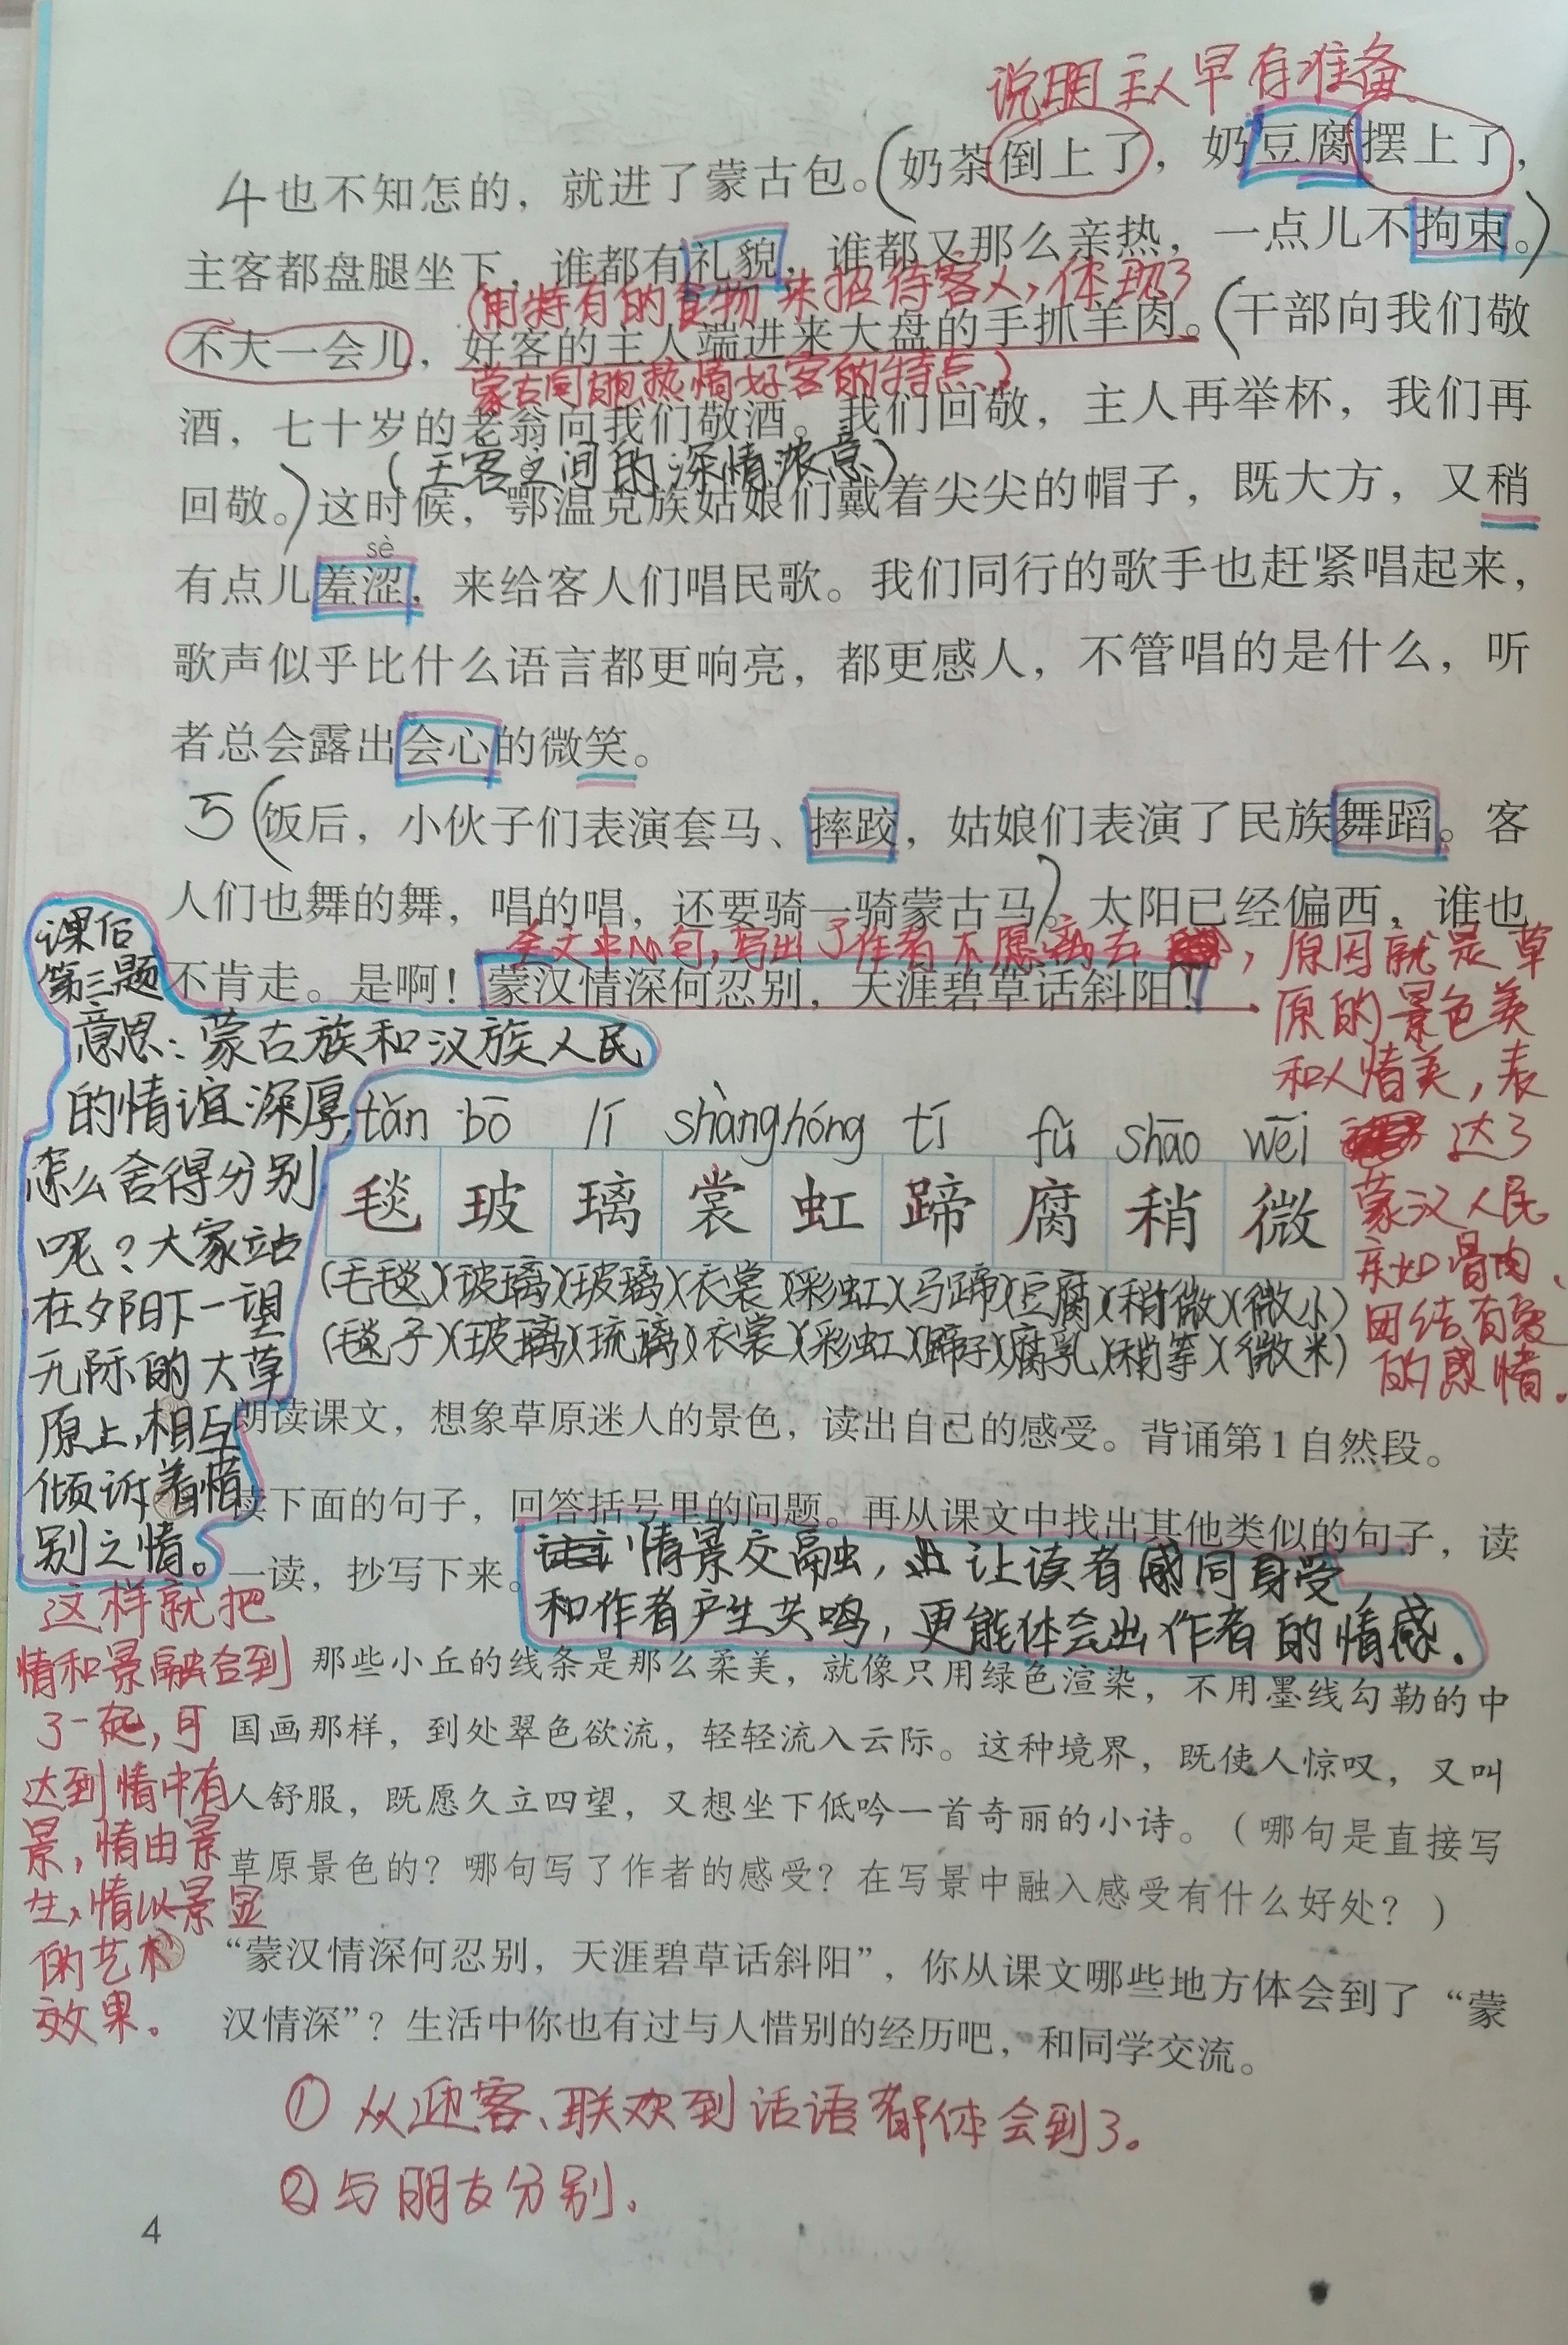 说明主人早有准备。
4也不知怎的，就进了蒙古包。（奶茶倒上了，奶豆腐摆上了，
主客都盘腿坐下，谁都有礼貌，谁都又那么亲热，一点儿不拘束。）
（用特有的食物来招待客人，体现了
不大一会儿，好客的主人端进来大盘的手抓羊肉。（干部向我们敬
蒙古同胞热情好客的特点）
酒，七十岁的老翁向我们敬酒。我们回敬，主人再举杯，我们再
（主客之间的深情浓意）
回敬。）这时候，鄂温克族姑娘们戴着尖尖的帽子，既大方，又稍
sè
有点儿羞涩，来给客人们唱民歌。我们同行的歌手也赶紧唱起来，
歌声似乎比什么语言都更响亮，都更感人，不管唱的是什么，听
者总会露出会心的微笑。
5（饭后，小伙子们表演套马、摔跤，姑娘们表演了民族舞蹈。客
人们也舞的舞，唱的唱，还要骑一骑蒙古马）。太阳已经偏西，谁也
全文中心句，写出了作者不愿离去，原因就是草
不肯走。是啊！蒙汉情深何忍别，天涯碧草话斜阳！
原的景色美
和人情美，表
达了
蒙汉人民
亲如骨肉、
团结有爱
的感情。
课后
第三题
意思：蒙古族和汉族人民
的情谊深厚，
怎么舍得分别
呢？大家站
在夕阳下一望
无际的大草
原上，相与
倾诉着惜
别之情。
tǎn bō lí shàng hóng tí fǔ shāo wēi
毯 玻 璃 裳 虹 蹄 腐 稍 微
（毛毯）（玻璃）（玻璃）（衣裳）（彩虹）（马蹄）（豆腐）（稍微）（微小）
（毯子）（玻璃）（琉璃）（衣裳）（彩虹）（蹄子）（腐乳）（稍等）（微米）
朗读课文，想象草原迷人的景色，读出自己的感受。背诵第1自然段。
读下面的句子，回答括号里的问题。再从课文中找出其他类似的句子，读
一读，抄写下来。
情景交融，让读者感同身受
和作者产生共鸣，更能体会出作者的情感.
那些小丘的线条是那么柔美，就像只用绿色渲染，不用墨线勾勒的中
国画那样，到处翠色欲流，轻轻流入云际。这种境界，既使人惊叹，又叫
人舒服，既愿久立四望，又想坐下低吟一首奇丽的小诗。（哪句是直接写
草原景色的？哪句写了作者的感受？在写景中融入感受有什么好处？）
这样就把
情和景融合到
了一起，可
达到情中有
景，情由景
生，情以景显
的艺术
效果。
“蒙汉情深何忍别，天涯碧草话斜阳”，你从课文哪些地方体会到了“蒙
汉情深”？生活中你也有过与人惜别的经历吧，和同学交流。
①从迎客、联欢到话语都体会到了。
②与朋友分别.
4